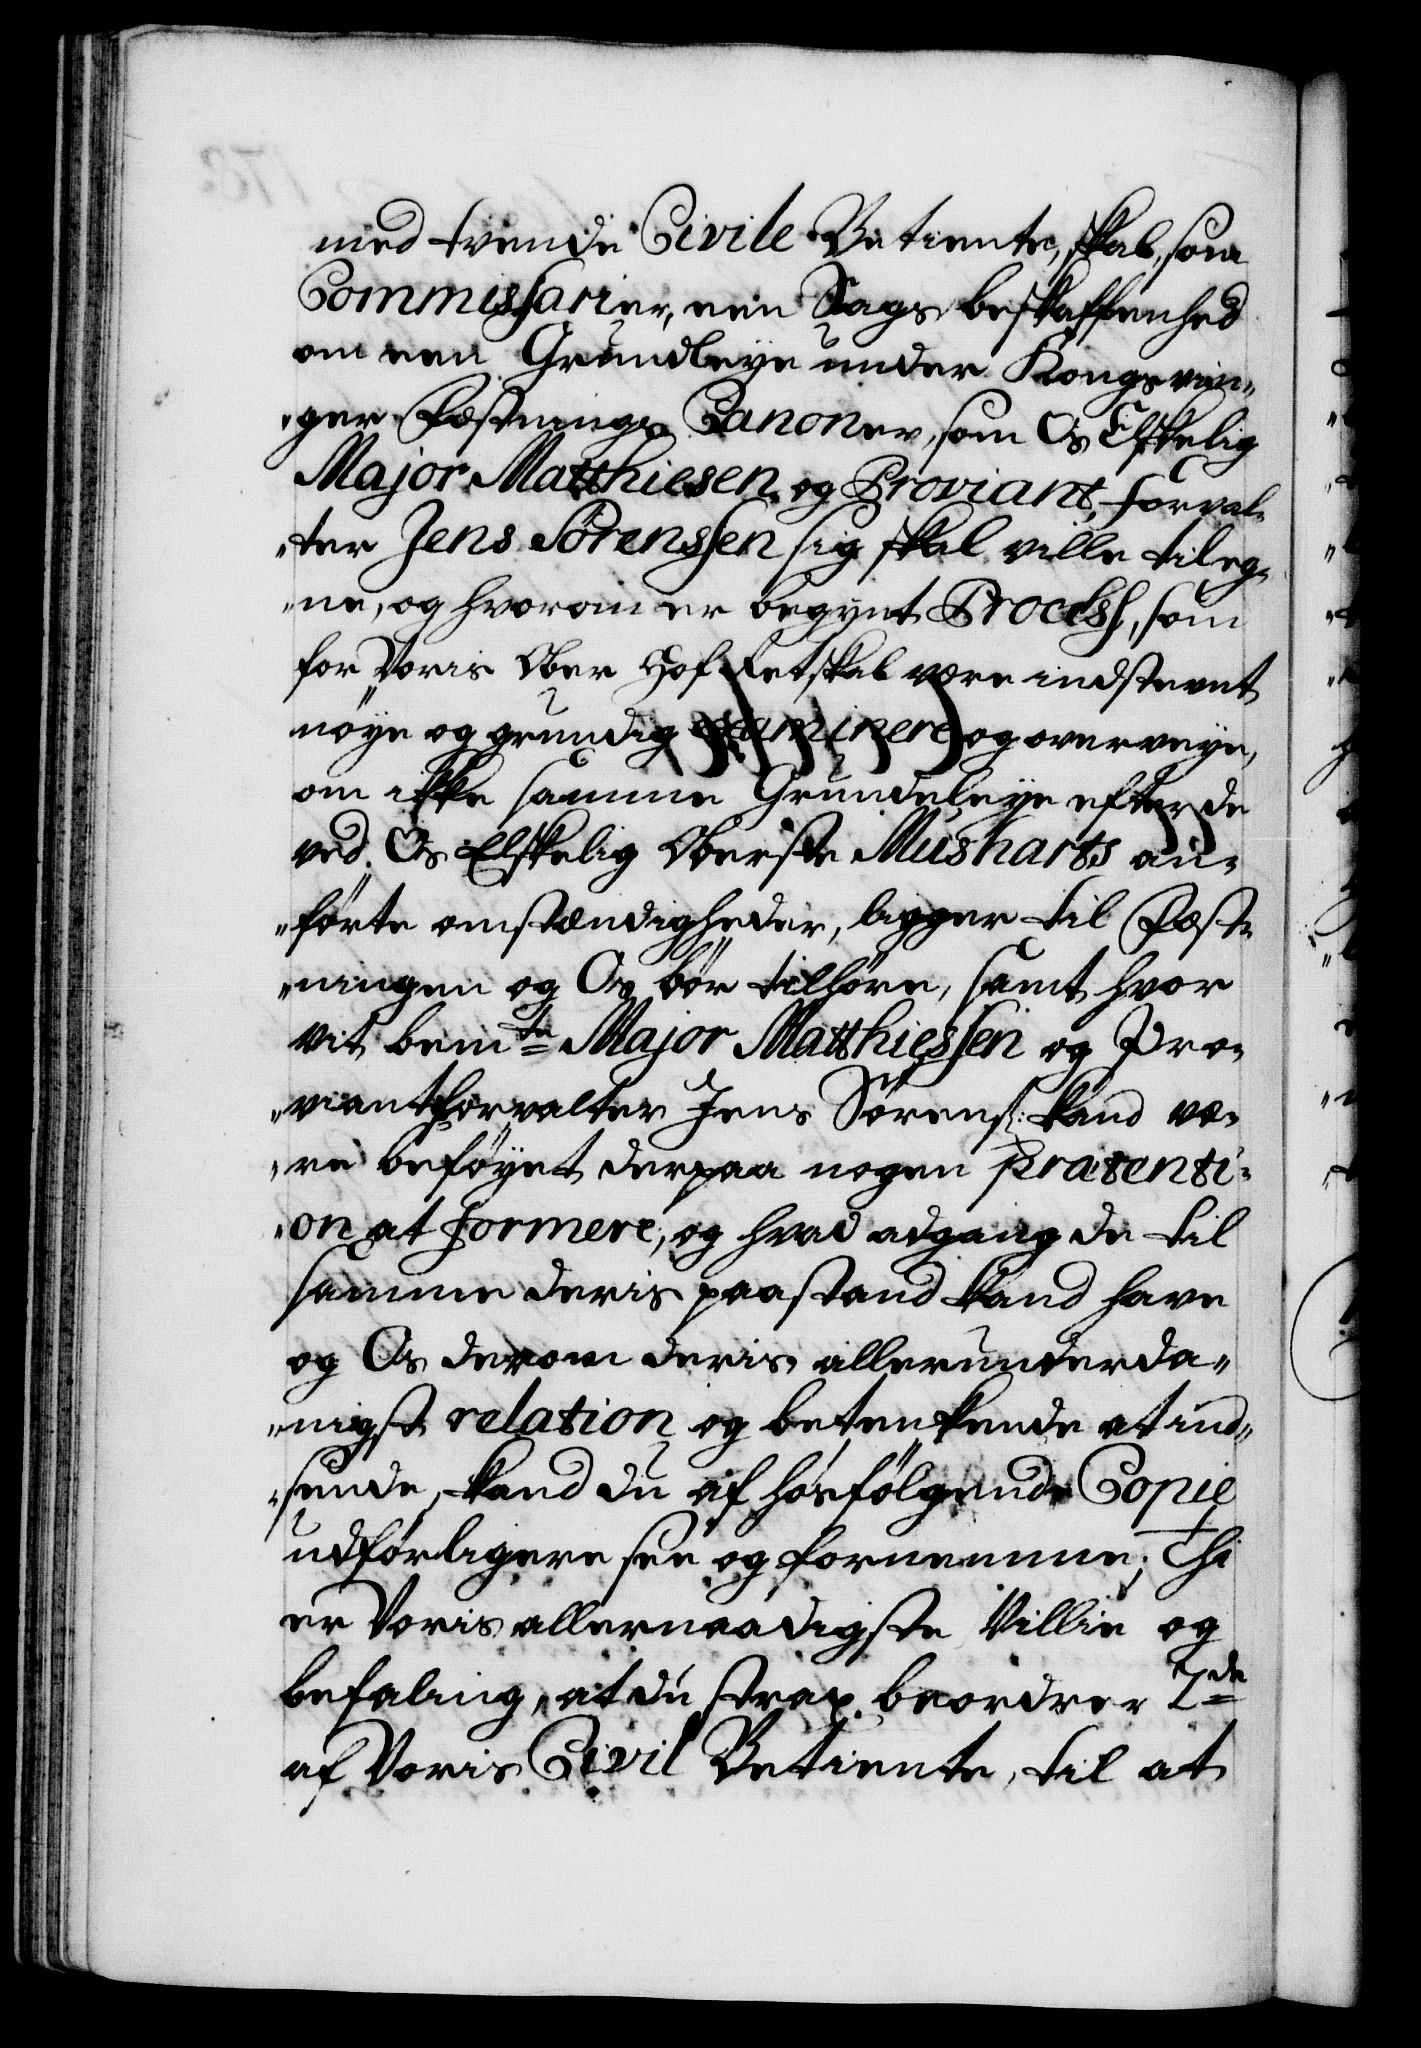 med tvende Civile Betiente, skal, som
Commissarier, een Sags beskaffenhed
om een Grundleye under Kongsvin„
„ger Fæstnings Canoner, som Os Elskelig
Major Matthiesen og Proviant, forval„
„ter Jens Sørenssen sig skal ville tileg„
„ne, og hvorom er begynt Process, som
for Voris Ober Hof Ret skal være indstevnt
nöye og grundig examinere og overveye,
om ikke samme Grundeleye efter de
ved Os Elskelig Oberste Musharts an„
„förte omstændigheder, ligger til Fæst„
„ningen og Os bör tilhöre, samt hvor
vit bemte Major Matthiessen og Pro„
„viantforvalter Jens Sörens: kand væ„
„re beföyet derpaa nogen prætenti„
„on at formere, og hvad adgang de til
samme deris paastand kand have
og Os derom deris allerunderda„
„nigst relation og betenkende at ind„
„sende, kand du af hosfölgende Copie
udförligere see og fornemme; Thi
er Voris allernaadigste Villie og
befaling, at du strax beordrer 2de
af Voris Civil Betiente, til at